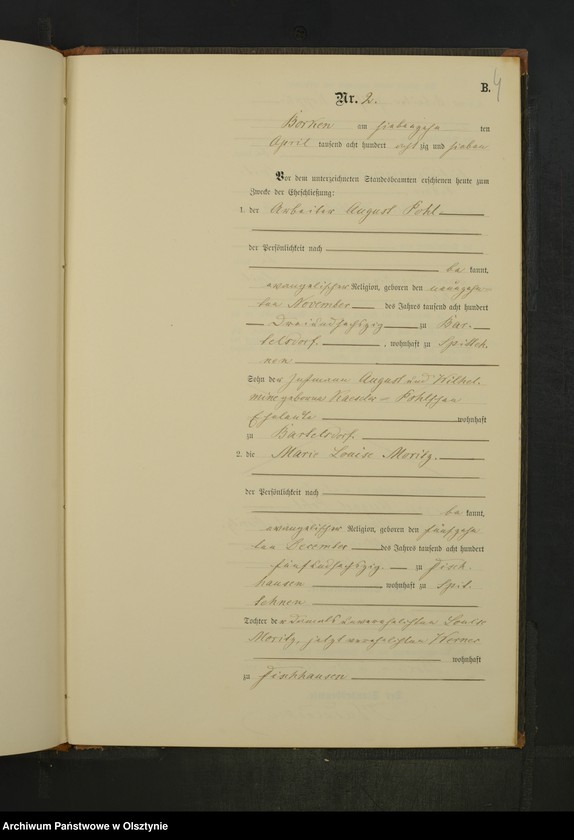 B. 4
Nr. 2.
Borken am siebenzehn ten
April tausend acht hundert achtzig und sieben
Vor dem unterzeichneten Standesbeamten erschienen heute zum
Zwecke der Eheschließung:
1. der Arbeiter August Pohl
der Persönlichkeit nach
be kannt,
evangelischer Religion, geboren den neunzehn
ten November des Jahres tausend acht hundert
dreiundsechszig zu Bar-
telsdorf, wohnhaft zu Spitteh-
nen
Sohn der Instmann August und Wilhel-
mine geborene Pohlschen
Eheleute wohnhaft
zu Bartelsdorf.
2. die Marie Louise Moritz.
der Persönlichkeit nach
be kannt,
evangelischer Religion, geboren den fünfzehn
ten December des Jahres tausend acht hundert
fünfundsechszig zu Fisch
hausen wohnhaft zu Spit-
tehnen
Tochter der damals unverehelichten Louise
Moritz, jetzt verehelichten Werner
wohnhaft
zu Fischhausen
Archiwum Państwowe w Olsztynie